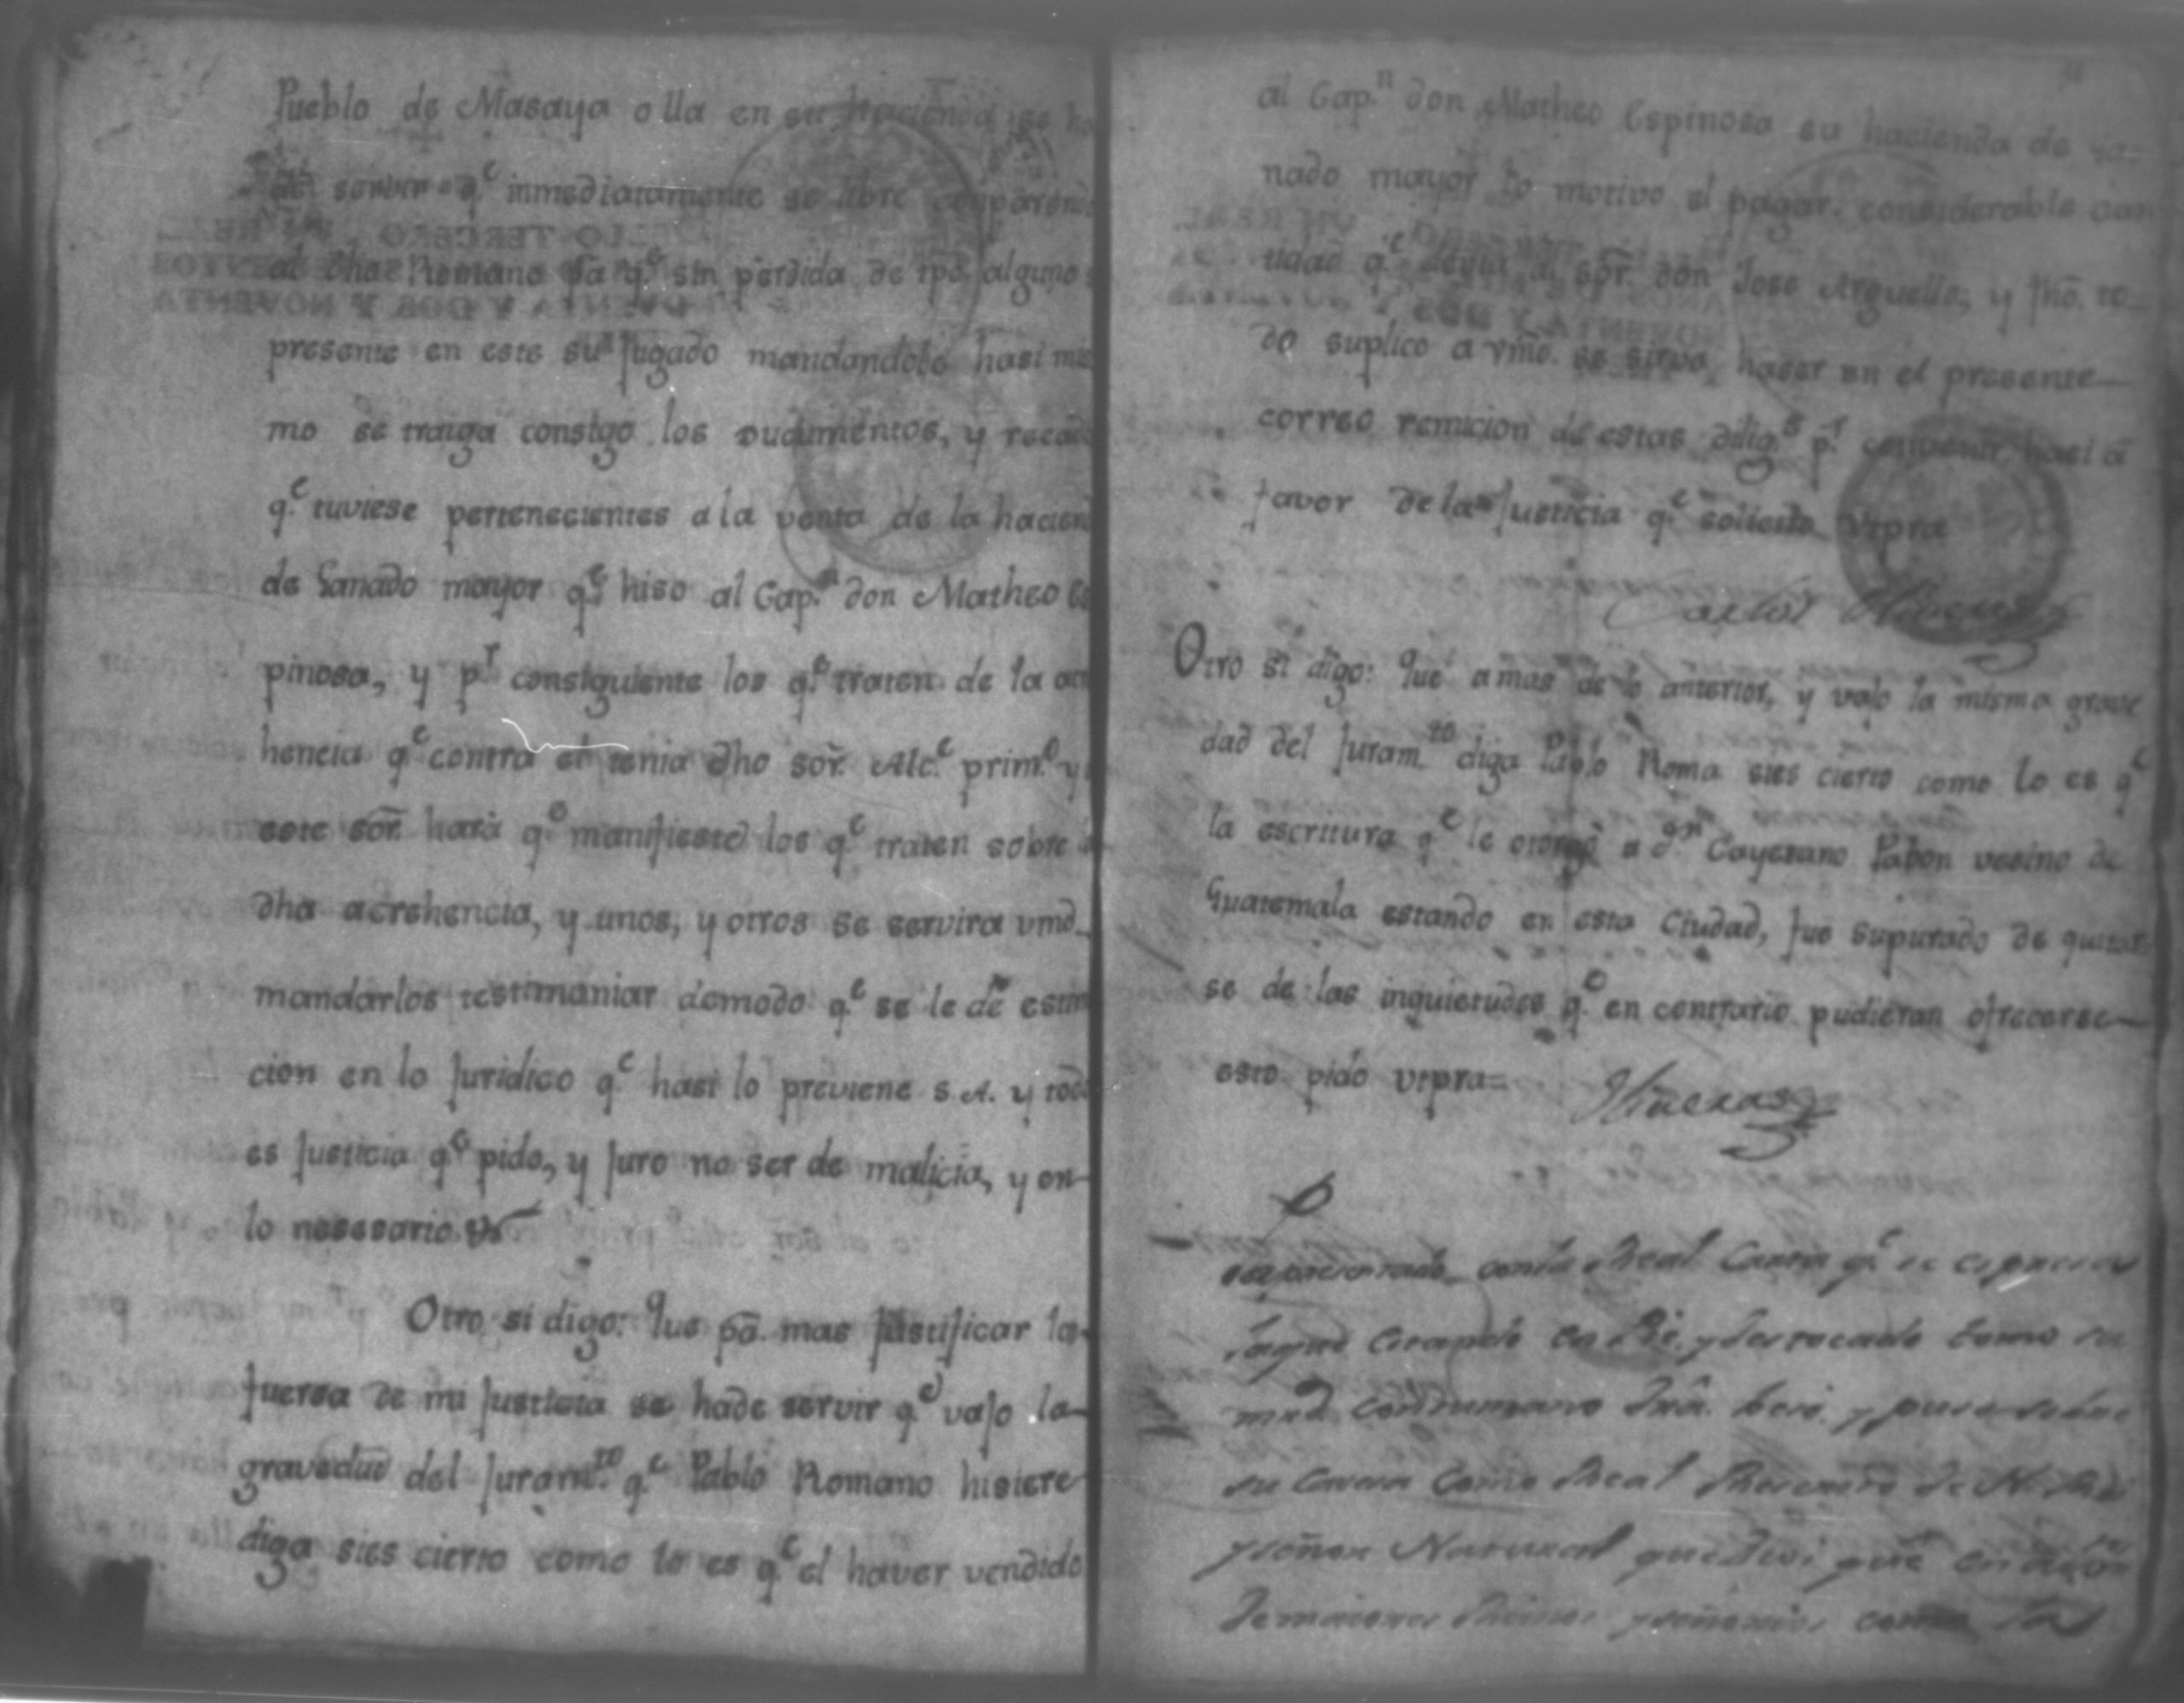 Pueblo de Masaya o lla en su hacienda se ha
de servir q.e inmediatamente se libre comparendo
al dho Romano pa q.e sin perdida de tpo alguno
presente en este su Jugado mandandole hasi mis
mo se traiga consigo los
q.e tuviese pertenecientes a la venta de la hacien
de Ganado mayor q.e hiso al Cap.n don Matheo Es
pinosa, y p.r consiguiente los q.e traten de la acr
hencia q.e contra el tenia dho sor. Alc.e prim.o y
este sor. hará q.e manifieste los q.e traten sobre
dha acrehencia, y unos, y otros se servira vmd.
mandarlos testimoniar demodo q.e se le dé estim
cion en lo Juridico q.e hasi lo previene s. A. y todo
es Justicia q.e pido, y Juro no ser de malicia, y en
lo nesesario &
Otro si digo: Que pa. mas justificar la
fuersa de mi Justicia se hade servir q.e vajo la
gravedad del Juram.to q.e Pablo Romano hisiere
diga sies cierto como lo es q.e el haver vendido
al Cap.n don Matheo Espinosa su hacienda de ga
nado mayor lo motivo el pagar considerable can
tidad q.e devia al sor. don Jose Arguello, y fho. to
do suplico a vmd. se sirva haser en el presente
correo remicion de estas dilig.s p.r convenir hasi á
favor de la Justicia q.e solicito Vtpra
Carlos
Otro si digo: Que amas de lo anterior, y vajo la misma grave
dad del Juram.to diga Pablo Roma sies cierto como lo es q.e
la escritura q.e le otorgó a d.n Cayetano Pabon vesino de
Guatemala estando en esta Ciudad, fue supurado de quitar
se de las inquietudes q.e en contrario pudieran ofrecerse
esto pido vtpra=
con la Real Carta q.e se espresa
en Pie, y destocado tomo su
mrd. con su mano dra. beso, y puso sobre
su Cavesa Como Real de N. Rei
y señor Natural que Dios gue. en
de maiores Reinos y señorios como la